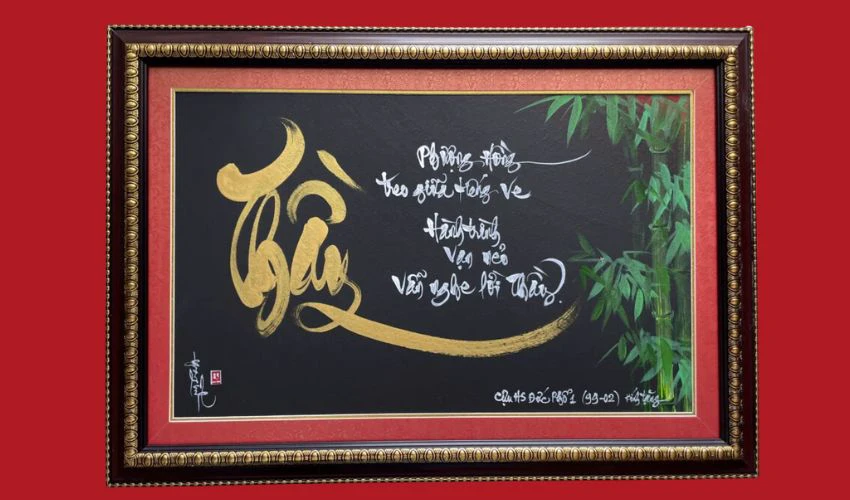 Thầy
Phượng Hồng
treo giữa tiếng ve
Hành trình
vạn nẻo
Vẫn nghe lời Thầy.
Cựu HS Đức Phổ 1 (99-02) kính tặng